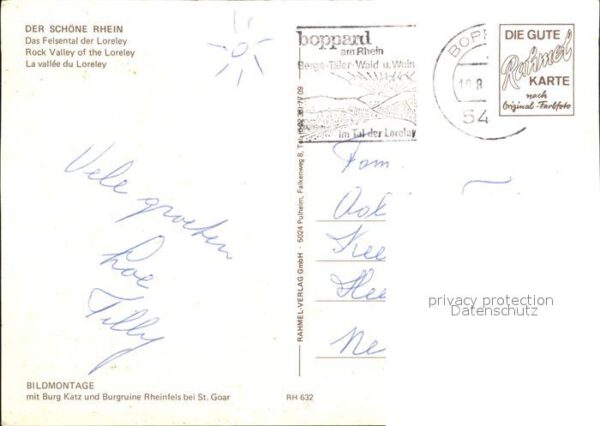 DER SCHÖNE RHEIN
Das Felsental der Loreley
Rock Valley of the Loreley
La vallée du Loreley
boppard
am Rhein
Berge-Täler-Wald u. Wein
im Tal der Loreley
BOPP
54
DIE GUTE
Rahmel
KARTE
nach
Original-Farbfoto
Vele groeten
Loe
Tilly
Fam.
Kee
Hee
Ne
RAHMEL-VERLAG GmbH · 5024 Pulheim, Falkenweg 8, Tel. (0 22 38) 77 09
privacy protection
Datenschutz
BILDMONTAGE
mit Burg Katz und Burgruine Rheinfels bei St. Goar
RH 632